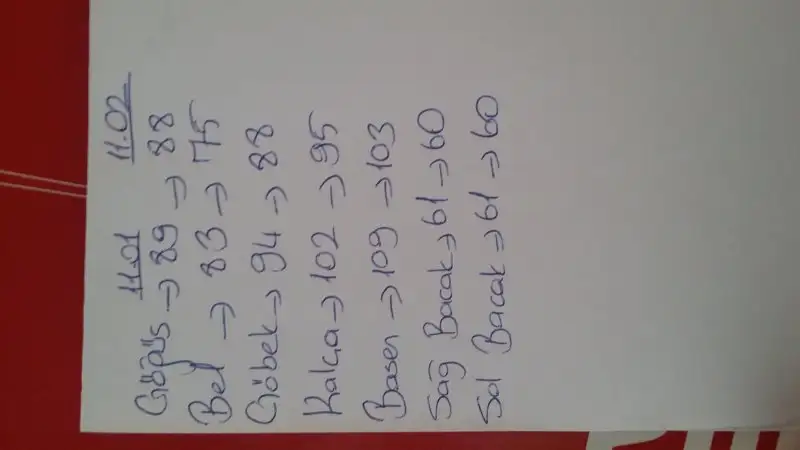 11.01 11.02
Göğüs → 89 → 88
Bel → 83 → 75
Göbek → 94 → 88
Kalça → 102 → 95
Basen → 109 → 103
Sağ Bacak → 61 → 60
Sol Bacak → 61 → 60